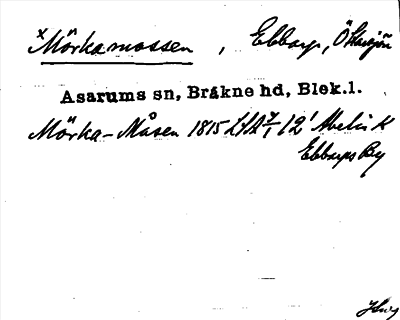 ×Mörkamossen, Ebbarp, Ö Härsjön
Asarums sn, Bräkne hd, Blek.l.
Mörka-Måsen 1815 LSA
Ebbarps By